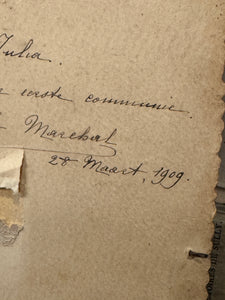 Julia.
eerste communie.
Marchal
28 Maart, 1909.